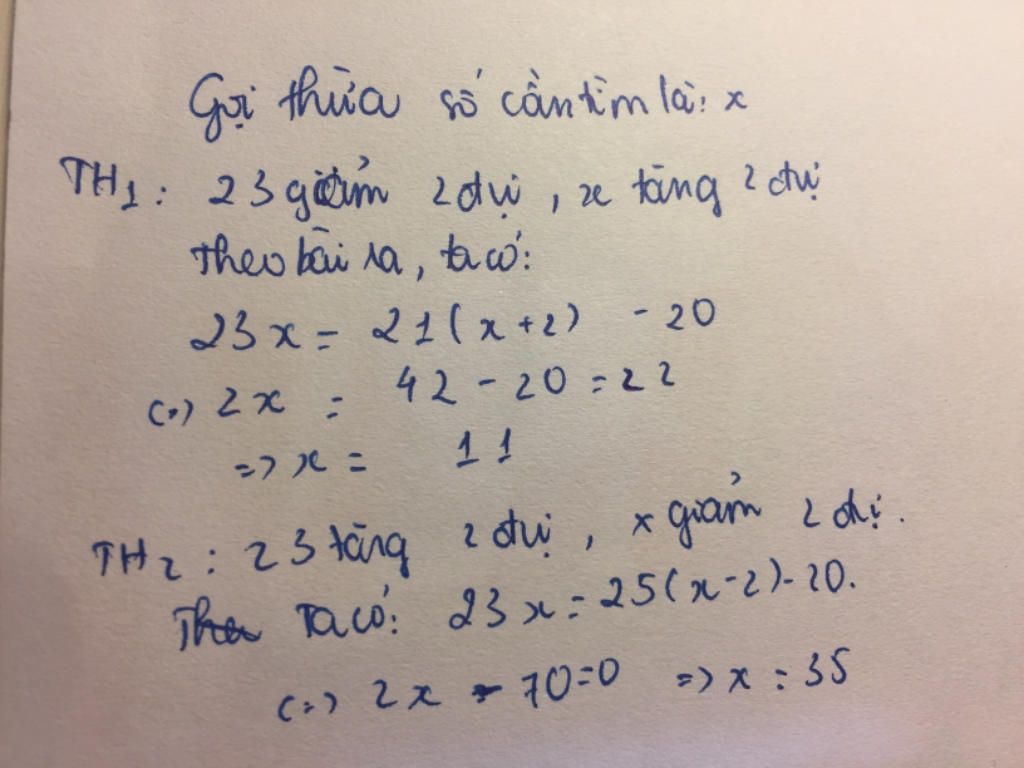 Gọi thừa số cần tìm là: x
TH1: 23 giảm 2 đvị, x tăng 2 đvị
Theo bài ra, ta có:
23x = 21(x+2) - 20
(=) 2x = 42 - 20 = 22
=> x = 11
TH2: 23 tăng 2 đvị, x giảm 2 đvị.
Ta có: 23x = 25(x-2)-20.
(=) 2x - 70=0 => x = 35